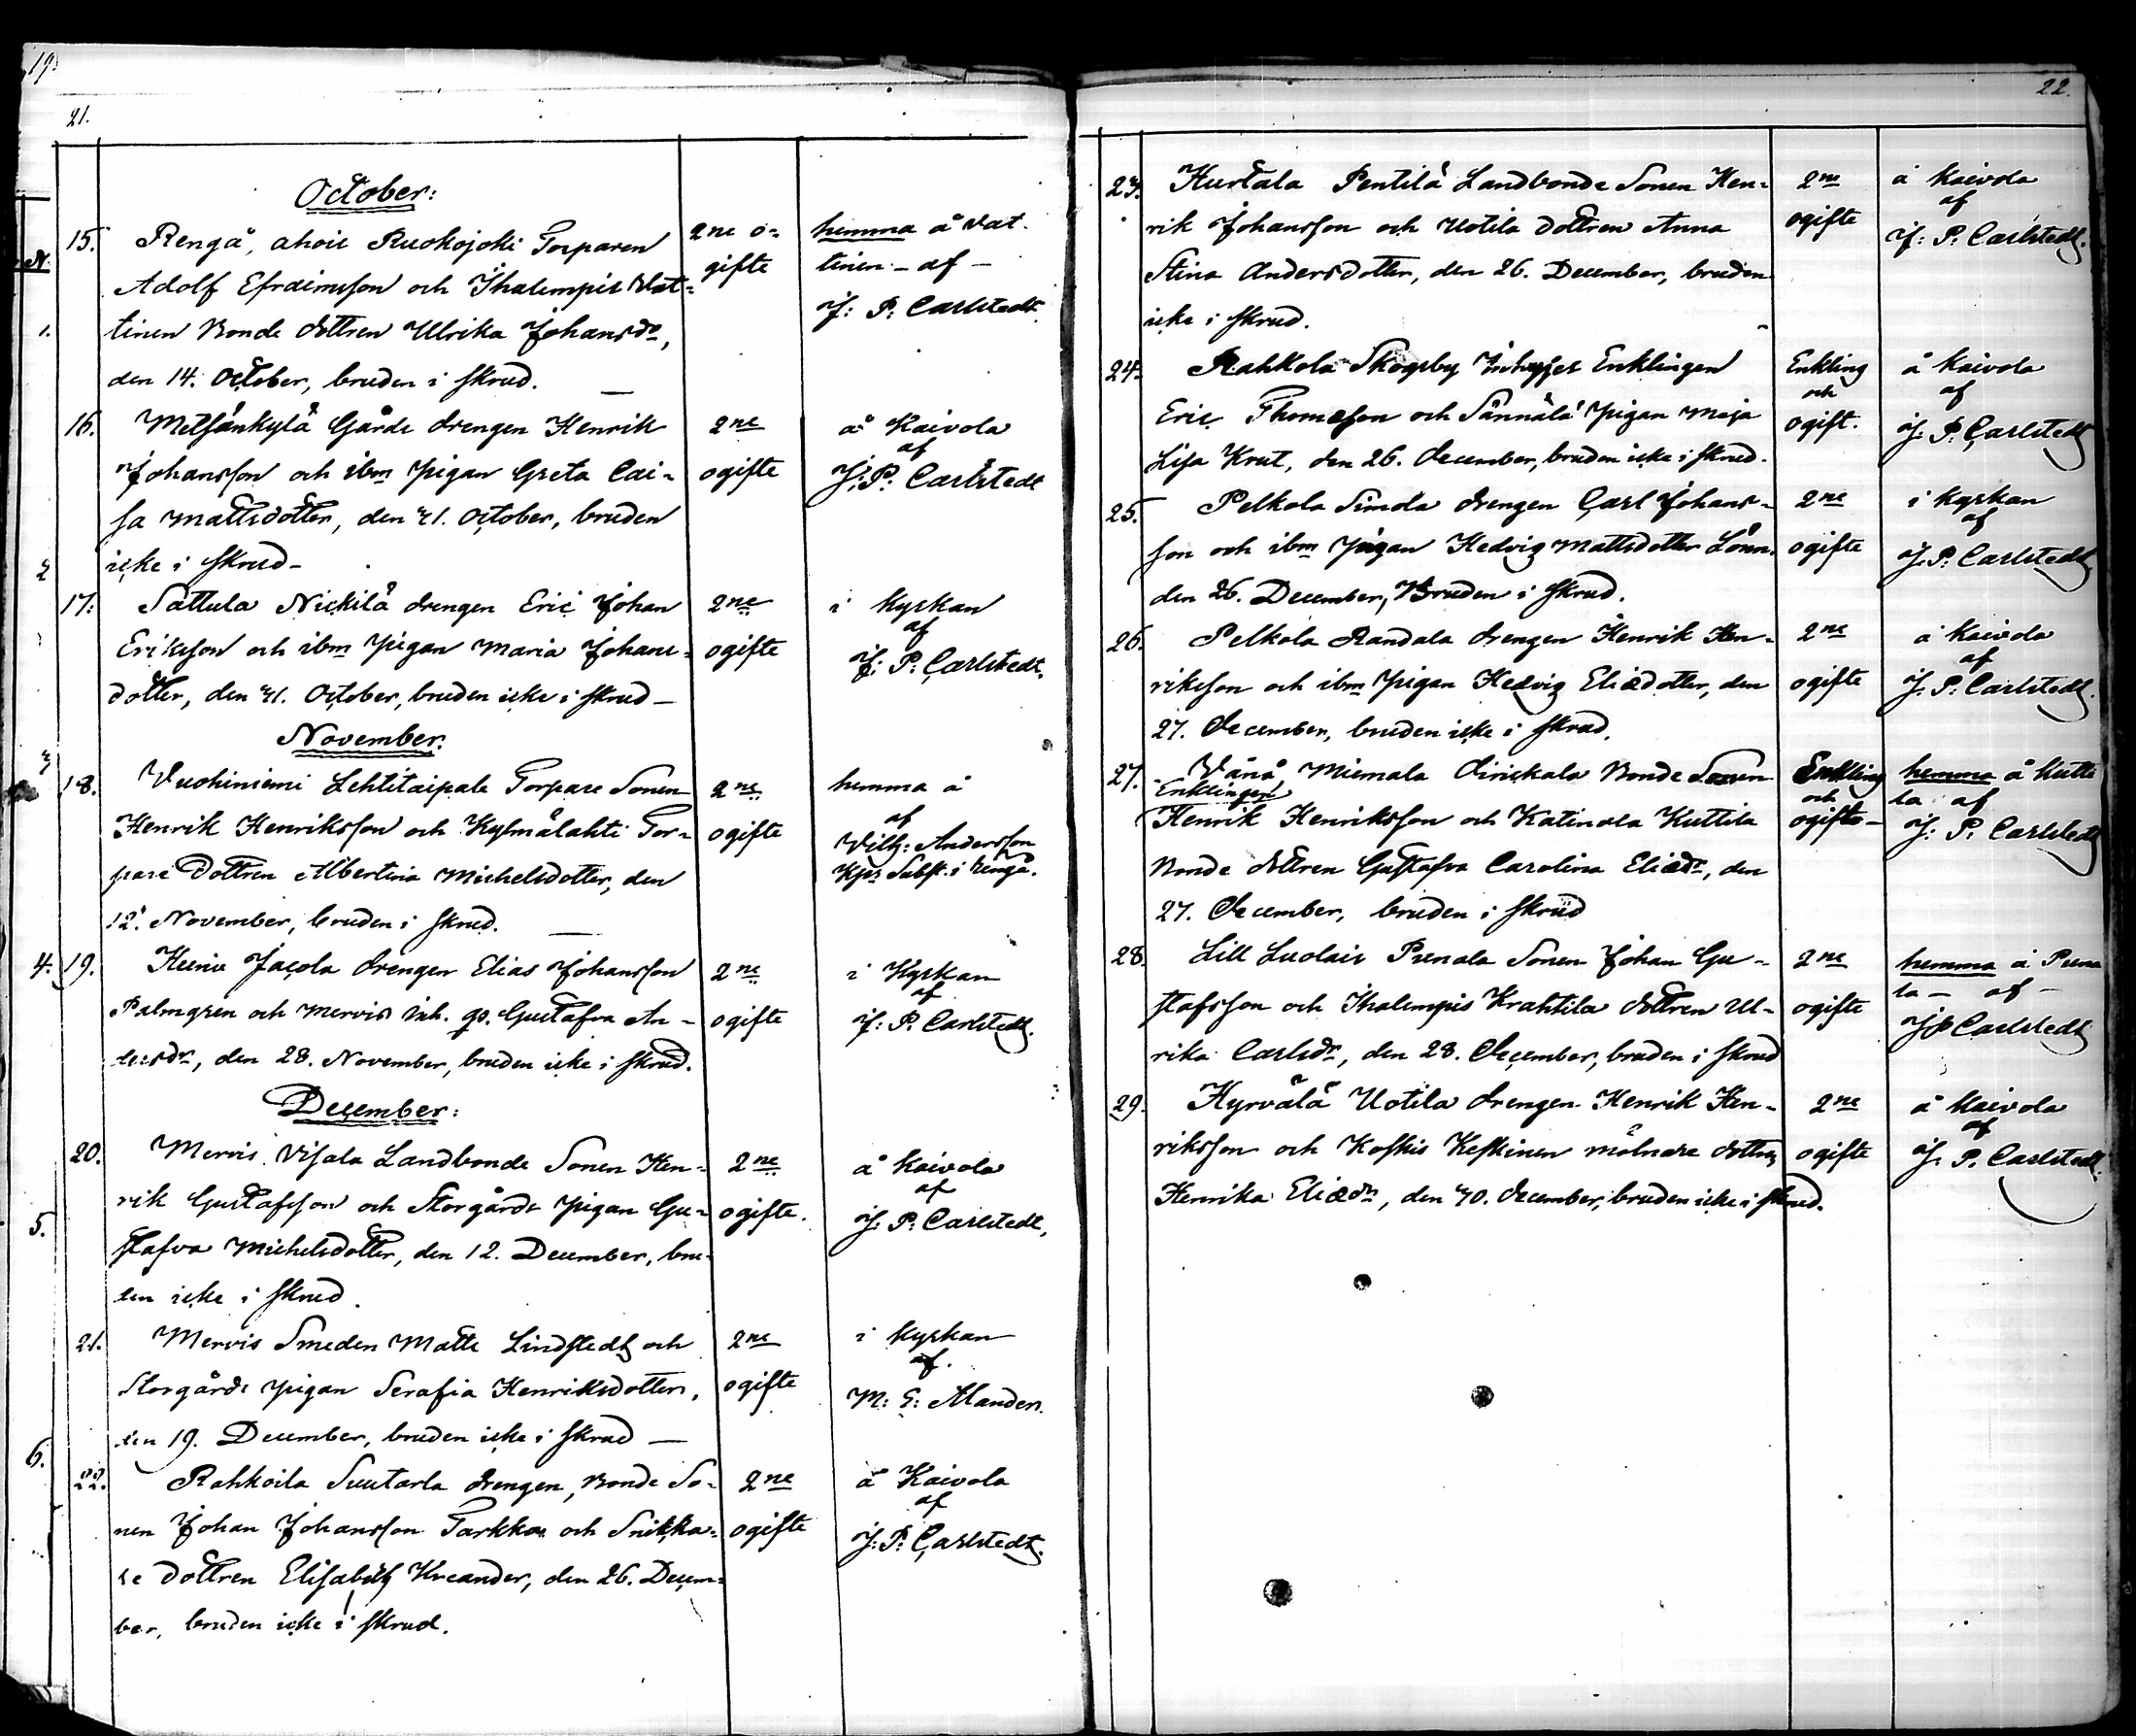 19.
21.
October:
15. Rengå, ahois Ruokojoki Torparen 2ne o- hemma å Vat-
Adolf Efraimsson och Ihalempis Vat- gifte tinen - af -
tinen Bonde dottren Ulrika Johansdr, J: P: Carlstedt.
den 14. October, bruden i skrud.
16. Metsänkylä Gårds drengen Henrik 2ne å Kaivola
Johansson och ibm pigan Greta Cai- ogifte af J: P: Carlstedt
sa Mattsdotter, den 21. October, bruden
icke i skrud -
17. Sattula Nickilä drengen Eric Johan 2ne i Kyrkan
Eriksson och ibm pigan Maria Johans- ogifte af J: P: Carlstedt.
dotter, den 21. October, bruden icke i skrud -
November.
18. Vuohiniemi Lehtitaipale Torpare Sonen 2ne hemma å
Henrik Henriksson och Kylmälahti Tor- ogifte af Vilh: Andersson
pare Dottren Albertina Michelsdotter, den Kps Subst. i Rengå.
12. November, bruden i skrud.
19. Hunu Jacola drengen Elias Johansson 2ne i Kyrkan
Palmgren och Mervis inh. qp. Gustafva An- ogifte af J: P: Carlstedt.
dersdr, den 28. November, bruden icke i skrud.
December:
20. Mervis Visala Landbonde Sonen Hen- 2ne å Kaivola
rik Gustafsson och Storgårds pigan Gu- ogifte. af J: P: Carlstedt,
stafva Michelsdotter, den 12. December, bru-
den icke i skrud.
21. Mervis Smeden Matts Lindstedt och 2ne i Kyrkan
Storgårds pigan Serafia Henriksdotter, ogifte af M: E: Alander.
den 19. December, bruden icke i skrud -
22. Rahkoila Suutarla drengen, Bonde So- 2ne å Kaivola
nen Johan Johansson Tarkka och Snikka- ogifte af J: P: Carlstedt.
re dottren Elisabeth Kreander, den 26. Decem-
ber, bruden icke i skrud.
22.
23. Hurtala Pentilä Landbonde Sonen Hen- 2ne å Kaivola
rik Johansson och Uotila dottren Anna ogifte af J: P: Carlstedt.
Stina Andersdotter, den 26. December, bruden
icke i skrud.
24. Rahkola Skogsby Inhyses Enklingen Enkling å Kaivola
Eric Thomasson och Sännälä pigan Maja och ogift. af J: P: Carlstedt
Lisa Krut, den 26. December, bruden icke i skrud.
25. Pelkola Simola drengen Carl Johans- 2ne i Kyrkan
son och ibm pigan Hedvig Mattsdotter Lönn. ogifte af J: P: Carlstedt
den 26. December, Bruden i skrud.
26. Pelkola Randala drengen Henrik Hen- 2ne å Kaivola
riksson och ibm pigan Hedvig Eliædotter, den ogifte af J: P: Carlstedt.
27. December, bruden icke i skrud.
27. Vänå Miemala Dirickala Bonde Sonen Enkling hemma å Kutti
Enklingen
Henrik Henriksson och Katinala Kuttila och ogifta - la af J: P: Carlstedt
Bonde dottren Gustafva Carolina Eliædr, den
27. December, bruden i skrud
28. Lill Luolais Prenala Sonen Johan Gu- 2ne hemma å Puna
stafsson och Ihalempis Krahtila dottren Ul- ogifte la - af - JP Carlstedt
rika Carlsdr, den 28. December, bruden i skrud
29. Hyrvälä Uotila drengen Henrik Hen- 2ne å Kaivola
riksson och Koskis Keskinen mölnare dottren ogifte af J: P: Carlstedt.
Henrika Eliædr, den 30. december, bruden icke i skrud.